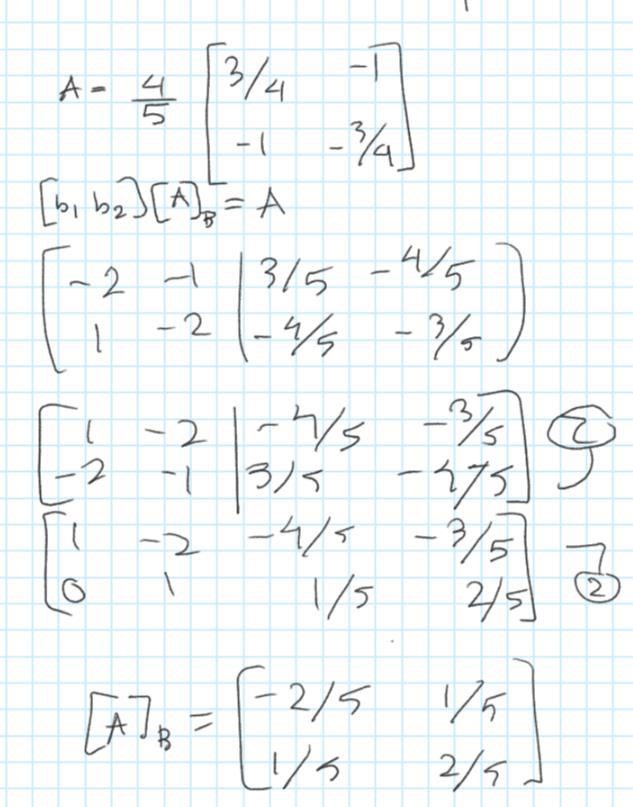 A = 4/5 [ 3/4 -1
-1 -3/4 ]
[b1 b2][A]B = A
( -2 -1 | 3/5 -4/5
1 -2 | -4/5 -3/5 )
[ 1 -2 | -4/5 -3/5
-2 -1 | 3/5 -4/5 ]
[ 1 -2 -4/5 -3/5
0 1 1/5 2/5 ] 2
[A]B = [ -2/5 1/5
1/5 2/5 ]